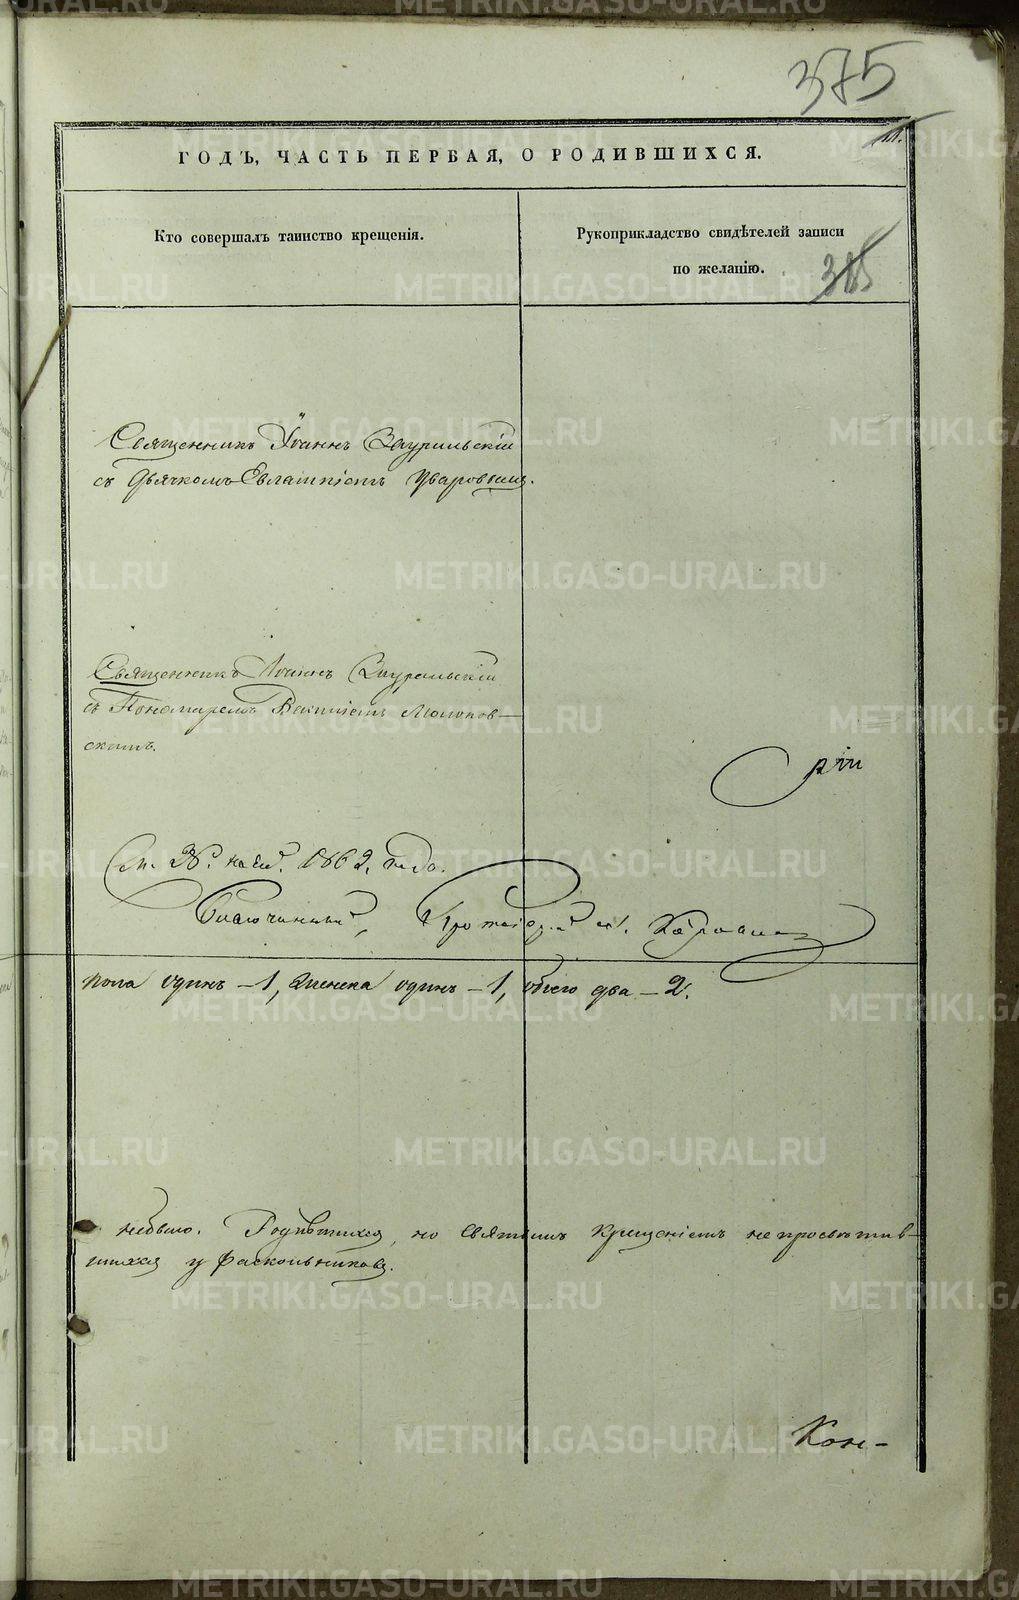 375
ГОДЪ, ЧАСТЬ ПЕРВАЯ, О РОДИВШИХСЯ.
Кто совершалъ таинство крещенія.
Рукоприкладство свидѣтелей записи
по желанію.
385
Священникъ Іоаннъ Зауральскій
съ Дьячкомъ Евлампіемъ Уваровымъ.
Священникъ Іоаннъ Зауральскій
съ Пономаремъ
скимъ.
рій
1862. года.
Благочинный, Протоіерей
пола одинъ – 1, женска одинъ – 1, обоего два – 2.
небыло. Родившихся, но Святымъ Крещеніемъ не просвѣтив-
шихся у раскольниковъ.
Кон-
METRIKI.GASO-URAL.RU